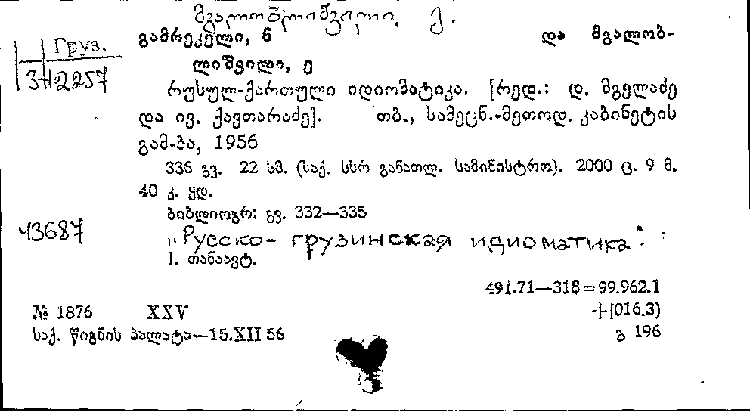 მგალობლიშვილი, ე.
გამრეკელი, ნ და მგალობ-
ლიშვილი, ე
Груз.
3Н2257
რუსულ-ქართული იდიომატიკა. [რედ.: დ. მგელაძე
და ივ. ქავთარაძე]. თბ., სამეცნ.-მეთოდ. კაბინეტის
გამ-ბა, 1956
336 გვ. 22 სმ. (საქ. სსრ განათლ. სამინისტრო). 2000 ც. 9 მ.
40 კ. ყდ.
ბიბლიოგრ: გვ. 332—335
43687
„Русско-грузинская идиоматика".
I. თანაავტ.
491.71—318=99.962.1
+[016.3)
№ 1876 XXV
საქ. წიგნის პალატა—15.XII 56
გ 196